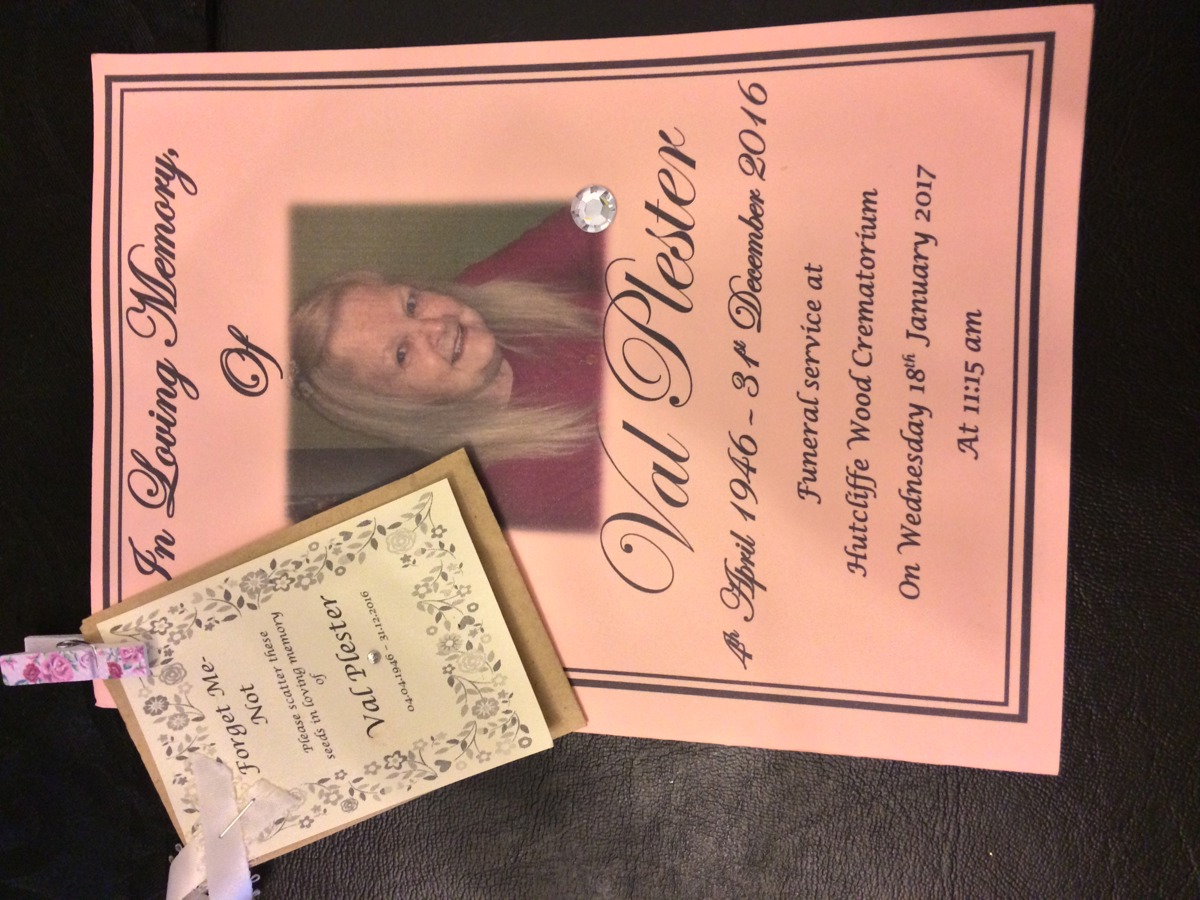 In Loving Memory,
Of
Val Plester
4th April 1946 - 31st December 2016
Funeral service at
Hutcliffe Wood Crematorium
On Wednesday 18th January 2017
At 11:15 am
Forget Me-
Not
Please scatter these
seeds in loving memory
of
Val Plester
04.04.1946 - 31.12.2016